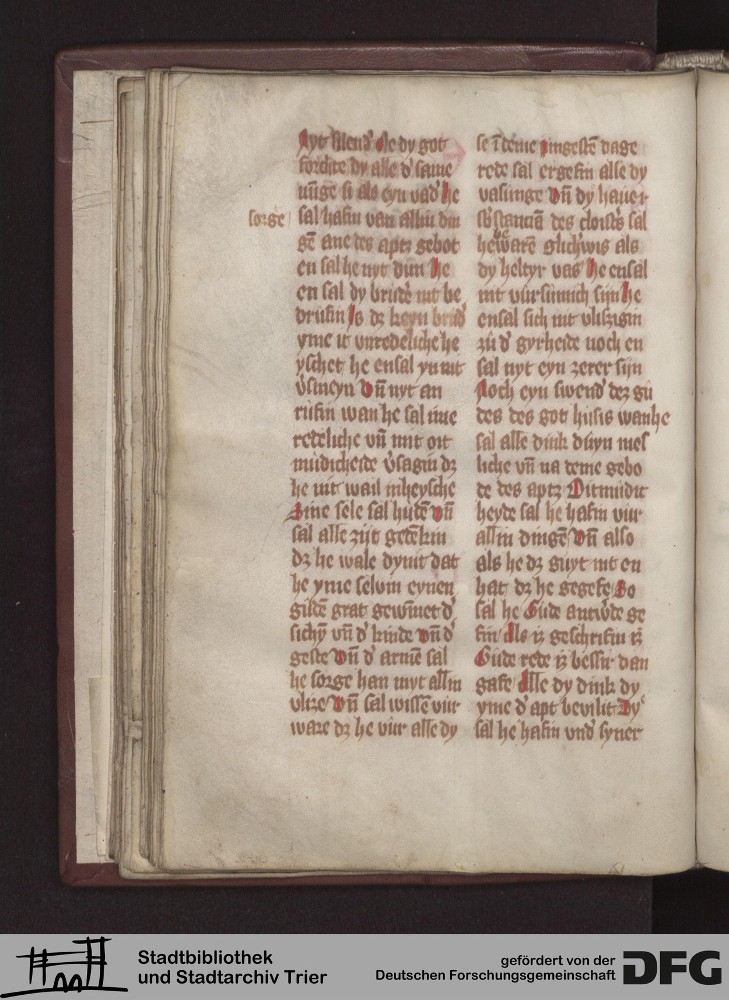 nyt slend' Me dy got
fordite dy alle d' same
nu͂ge si als eyn vad' he
sorge
sal hafin van allin din
ge͂ ane des aptz gebot
en sal he nyt dun he
en sal dy brud'e nit be
drufin Is dz keyn brud'
yme it unredeliche he
yschet he ensal yn nit
v'smeyn vn͂ nyt an
rufin wan he sal ime
redeliche vn͂ mit oit
mudicheide v'sagin dz
he nit wail inheysche
Sine sele sal hude͂ vn͂
sal alle zijt gede͂kin
dz he wale dynit dat
he yme selvin eynen
gude͂ grat gewi͂net d'
sichy͂ vn͂ d' kinde vn͂ d'
geste vn͂ d' arme͂ sal
he sorge han myt allin
vlize vn͂ sal wissen vur
ware dz he vur alle dy
se i͂ deme jungeste͂ dage
rede sal ergefin alle dy
vasunge vn͂ dy haue r
sb'stancia͂ des cloist's sal
heware͂ glich'wis als
dy heltyr vas he ensal
nit vursinnich sijn he
ensal sich nit vliszigin
zu d' gyrheide noch en
sal nyt eyn zerer sijn
Noch eyn swend' dez gu
des des got husis wan he
sal alle dink duyn mes
liche vn͂ na deme gebo
de des aptz Oitmudit
heyde sal he hafin vur
allin dinge͂ vn͂ also
als he dz guyt nit en
hat dz he gegefe So
sal he Gude antw'de ge
fin Als iz geschrifin iz
Gude rede iz bessir dan
gafe Alle dy dink dy
yme d' apt bevilit Dy
sal he hafin vnd' syner
Stadtbibliothek
und Stadtarchiv Trier
gefördert von der
Deutschen Forschungsgemeinschaft
DFG